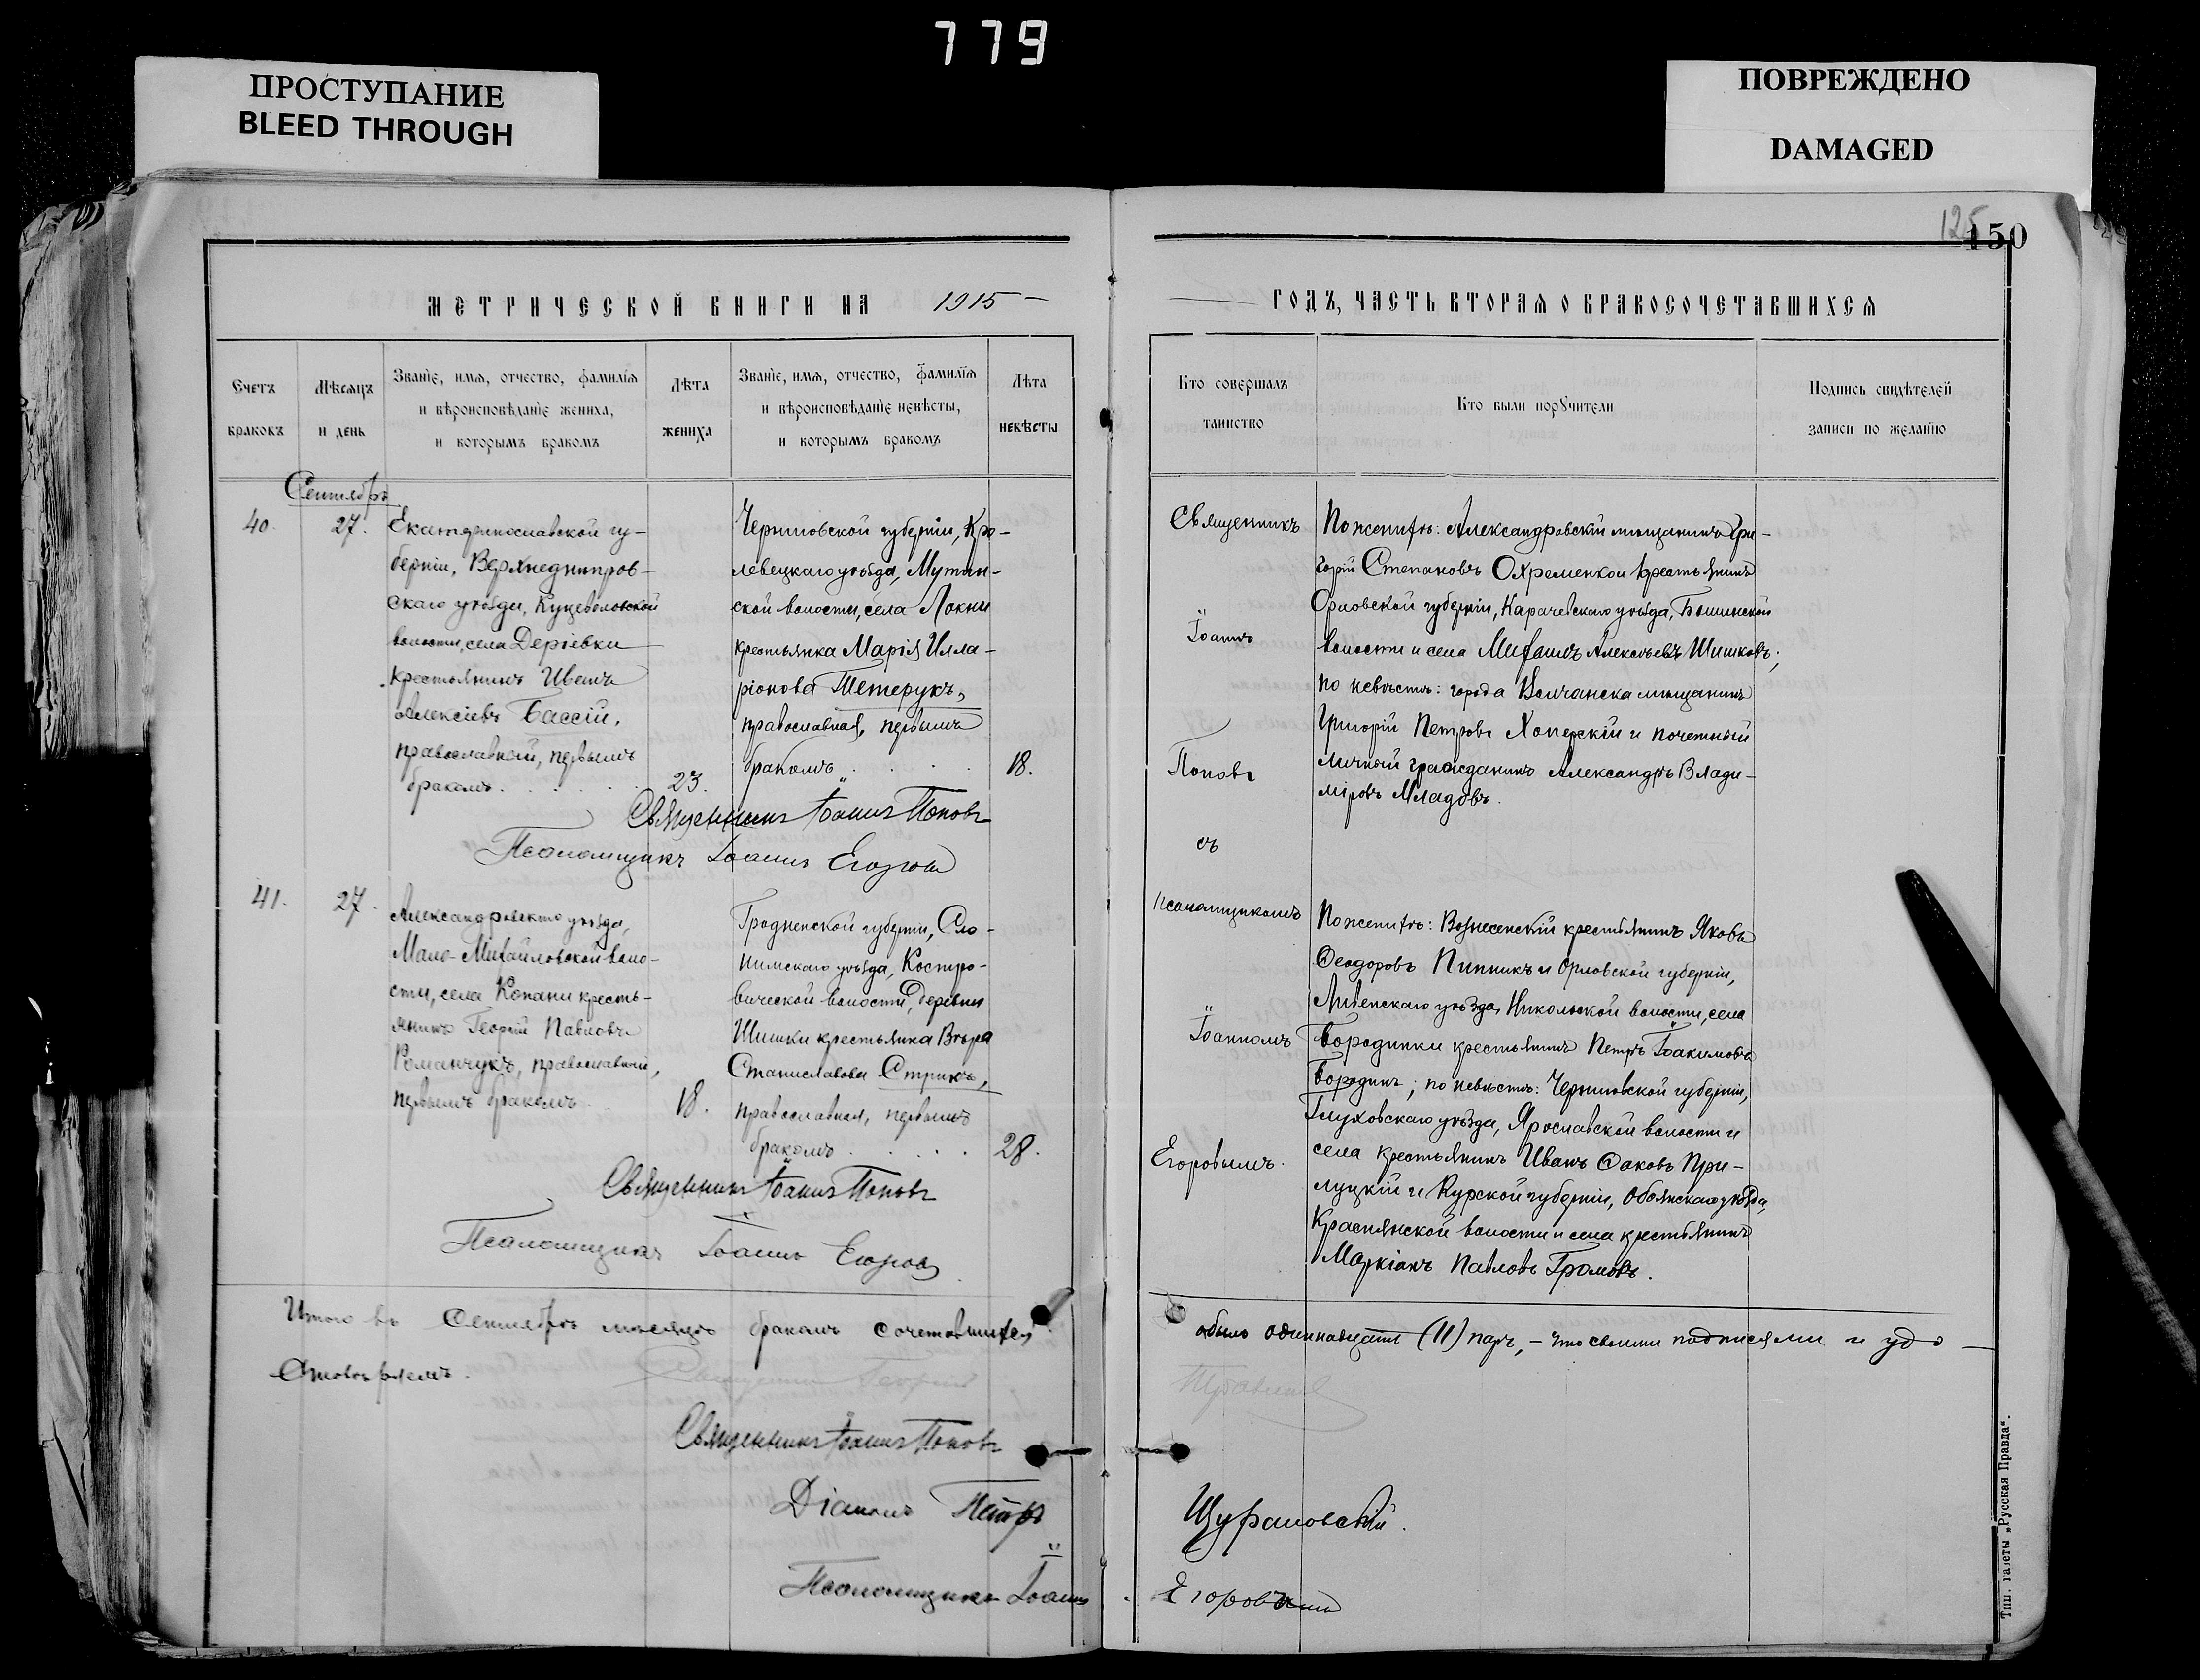 779
ПРОСТУПАНИЕ
BLEED THROUGH
ПОВРЕЖДЕНО
DAMAGED
125
150
МЕТРИЧЕСКОЙ КНИГИ НА 1915
ГОДЪ, ЧАСТЬ ВТОРАЯ О БРАКОСОЧЕТАВШИХСЯ
Счетъ
браковъ
Мѣсяцъ
и день
Званіе, имя, отчество, фамилія
и вѣроисповѣданіе жениха,
и которымъ бракомъ
Лѣта
жениха
Званіе, имя, отчество, фамилія
и вѣроисповѣданіе невѣсты,
и которымъ бракомъ
Лѣта
невѣсты
Кто совершалъ
таинство
Кто были поручители
Подпись свидѣтелей
записи по желанію
Сентябрь
40.
27.
Екатеринославской гу-
берніи, Верхнеднѣпров-
скаго уѣзда, Куцеволовской
волости, села Деріевки
крестьянинъ Иванъ
Алексіевъ Бассій,
православный, первымъ
бракомъ.
23.
Черниговской губерніи, Кро-
левецкаго уѣзда, Мутин-
ской волости, села Локни
крестьянка Марія Илла-
ріонова Тетерукъ,
православная, первымъ
бракомъ
18.
Священникъ Іоаннъ Поповъ
Псаломщикъ Іоаннъ Егоров
Священникъ
Іоаннъ
Поповъ
съ
псаломщикомъ
Іоанномъ
Егоровымъ.
По женихѣ: Александровскій мѣщанинъ Гри-
горій Степановъ Охременко и крестьянинъ
Орловской губерніи, Карачевскаго уѣзда, Бошинской
волости и села Михаилъ Алексѣевъ Шишковъ;
по невѣстѣ: города Волчанска мѣщанинъ
Григорій Петровъ Хоперскій и почетный
личный гражданинъ Александръ Влади-
міровъ Младовъ.
41.
27.
Александровскаго уѣзда,
Мало-Михайловской воло-
сти, села Копани кресть-
янинъ Георгій Павловъ
Романчукъ, православный,
первымъ бракомъ
18.
Гродненской губерніи, Сло-
нимскаго уѣзда, Костро-
вической волости, деревни
Шишки крестьянка Вѣра
Станиславова Стрикъ,
православная, первымъ
бракомъ
28.
Священникъ Іоаннъ Поповъ
Псаломщикъ Іоаннъ Егоров
По женихѣ: Вознесенскій крестьянинъ Яковъ
Ѳеодоровъ Пипникъ и Орловской губерніи,
Ливенскаго уѣзда, Никольской волости, села
Бородинки крестьянинъ Петръ Іоакимовъ
Бородинъ; по невѣстѣ: Черниговской губерніи,
Глуховскаго уѣзда, Ярославской волости и
села крестьянинъ Иванъ Саковъ При-
луцкій и Курской губерніи, Обоянскаго уѣзда,
Краснянской волости и села крестьянинъ
Маркіанъ Павловъ Громовъ.
Итого въ Сентябрѣ мѣсяцѣ бракомъ сочетавшихся
было одиннадцать (11) паръ, – что своими подписями и удо-
стовѣряемъ.
Священникъ Іоаннъ Поповъ
Діаконъ Петръ
Псаломщикъ Іоаннъ Егоровъ
Тип. газеты „Русская Правда“.